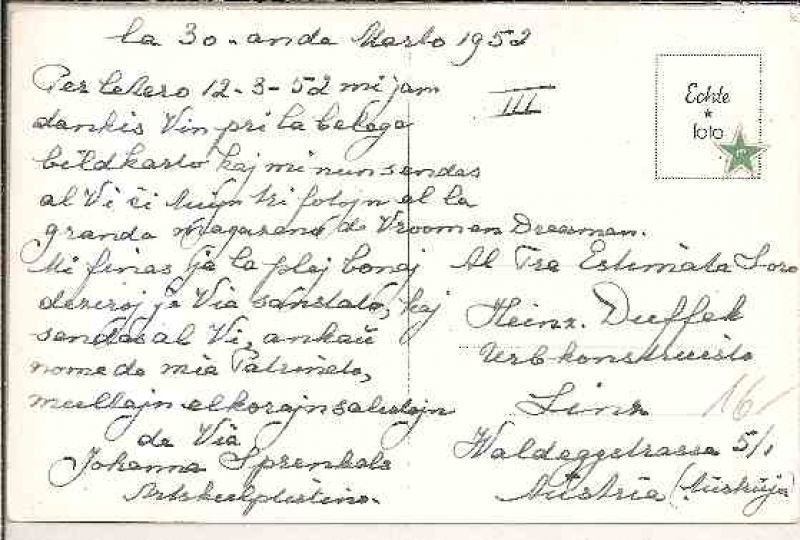 la 30-anda Marto 1952
III
Echte
foto
Per letero 12-3-52 mi jam
dankis Vin pri la belega
bildkarto kaj mi nun sendas
al Vi ĉi tiujn tri fotojn el la
granda magazeno de Vroom en Dreesman.
Mi finas je la plej bonaj
deziroj je Via sanstato, kaj
sendas al Vi, ankaŭ
nome de mia Patrineto,
multajn elkorajn salutojn
de Via
Johanna Sprenkels
Artskulptistino.
Al Tre Estimata Soro
Heinz. Duffek
Urbkonstruisto
Linz
16
Waldeggstrasse 5/1
Austria (Aŭstrujo)